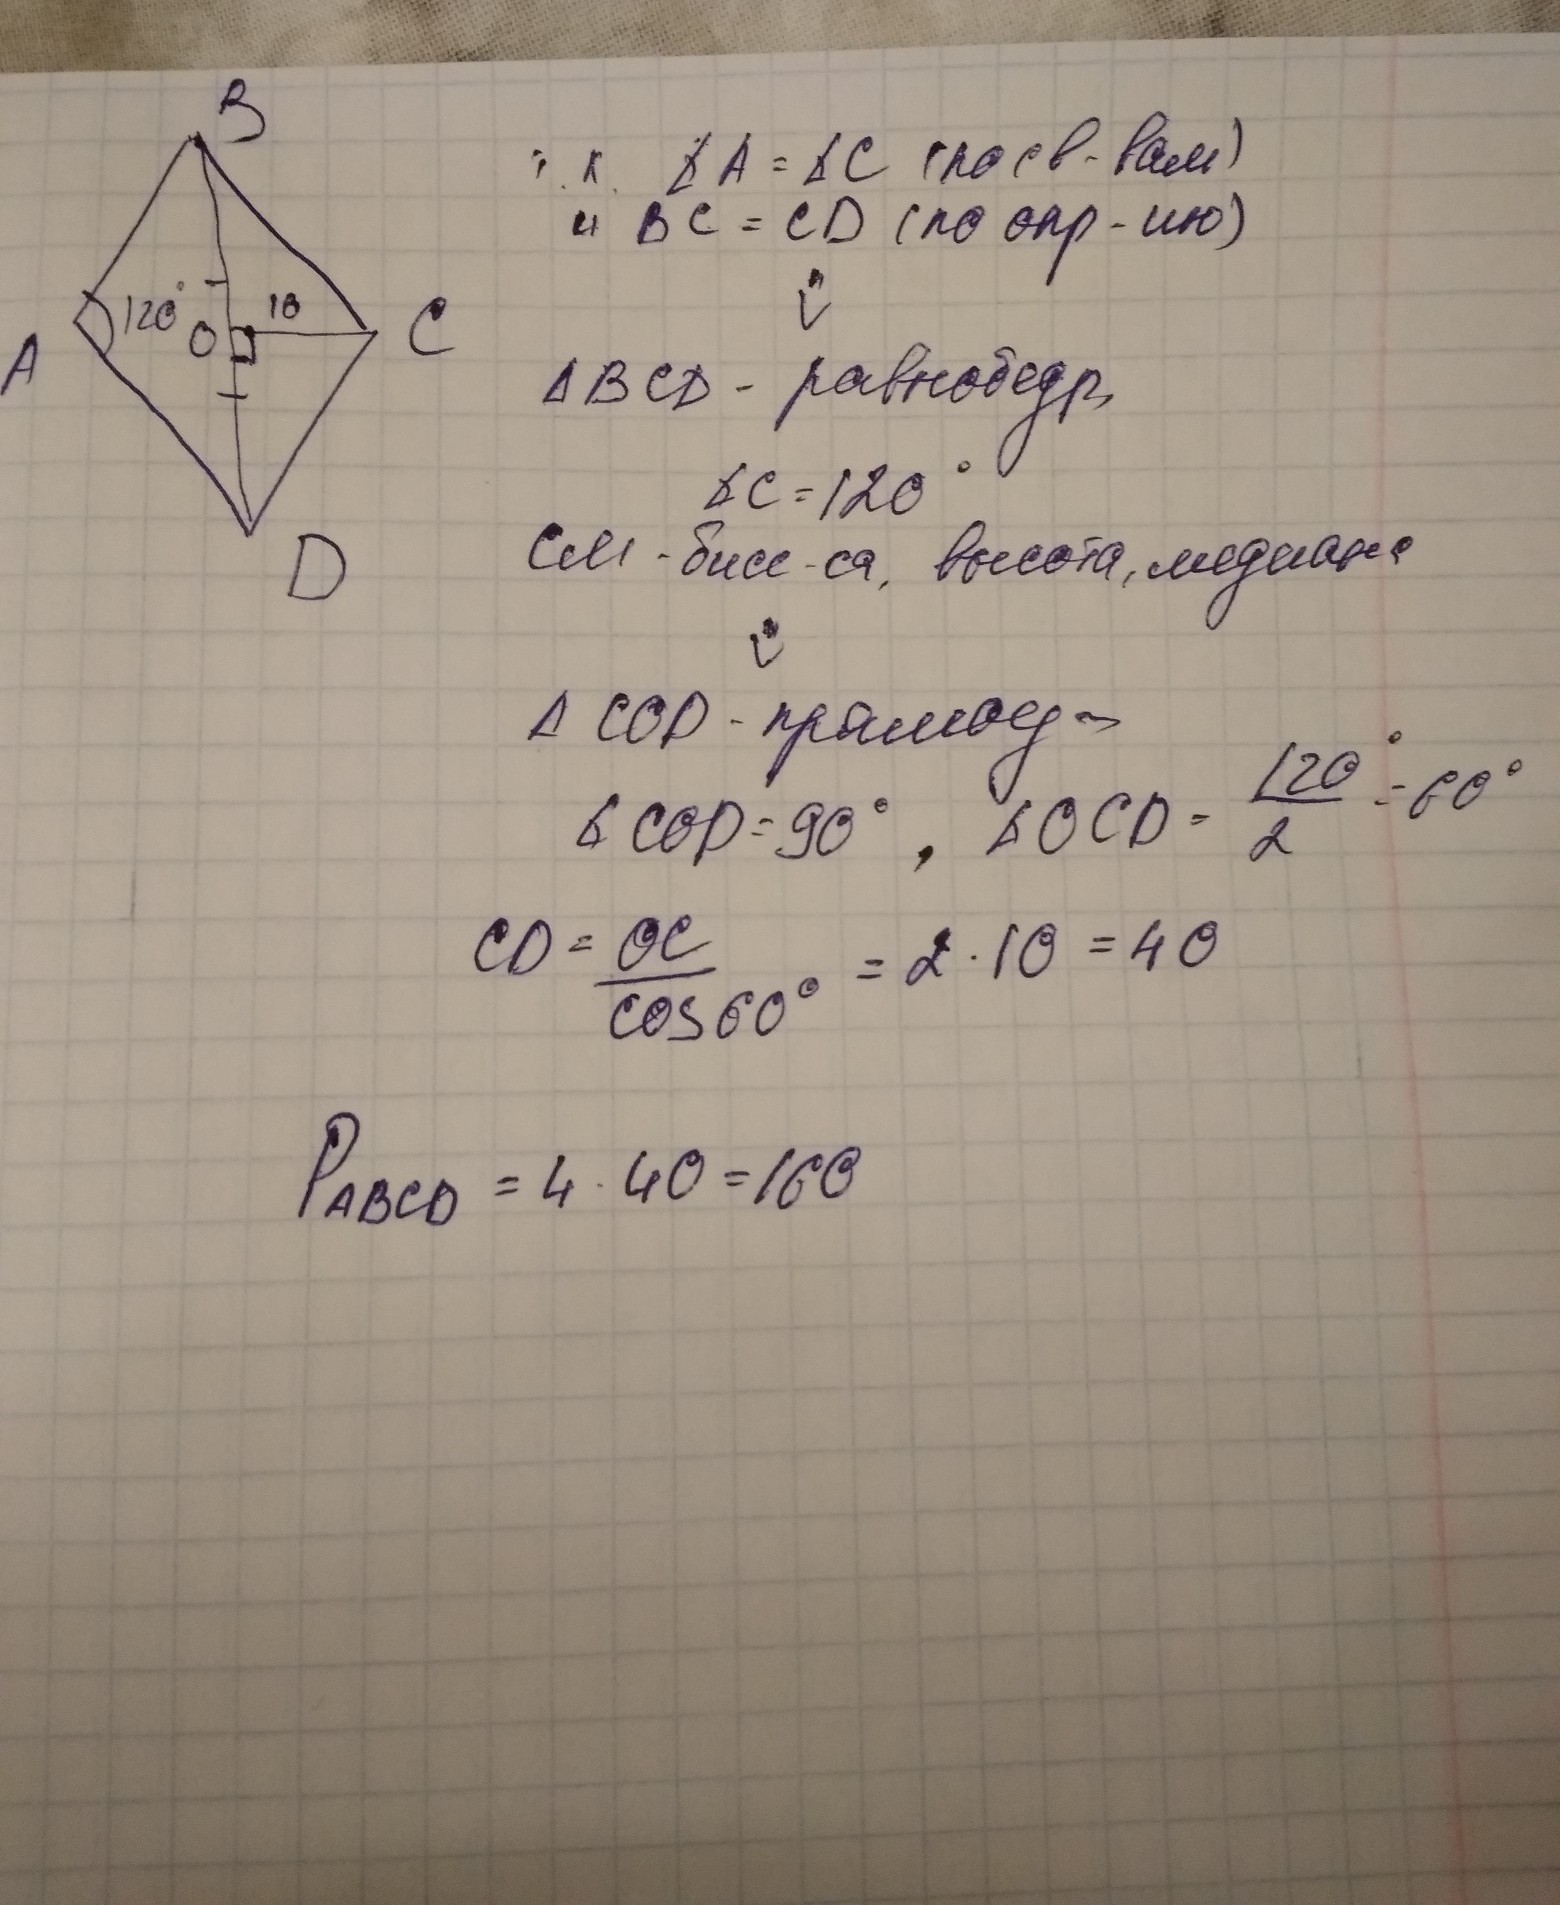 B
т.к. ∠A = ∠C (по св-вам)
и BC = CD (по опр-ию)
120° O 10 C
A
⇓
ΔBCD - равнобедр,
∠C = 120°
D
CM - бисс-са, высота, медиана
⇓
ΔCOD - прямоуг
∠COD = 90°, ∠OCD = 120°/2 = 60°
CD = OC/cos60° = 2 · 10 = 40
P ABCD = 4 · 40 = 160